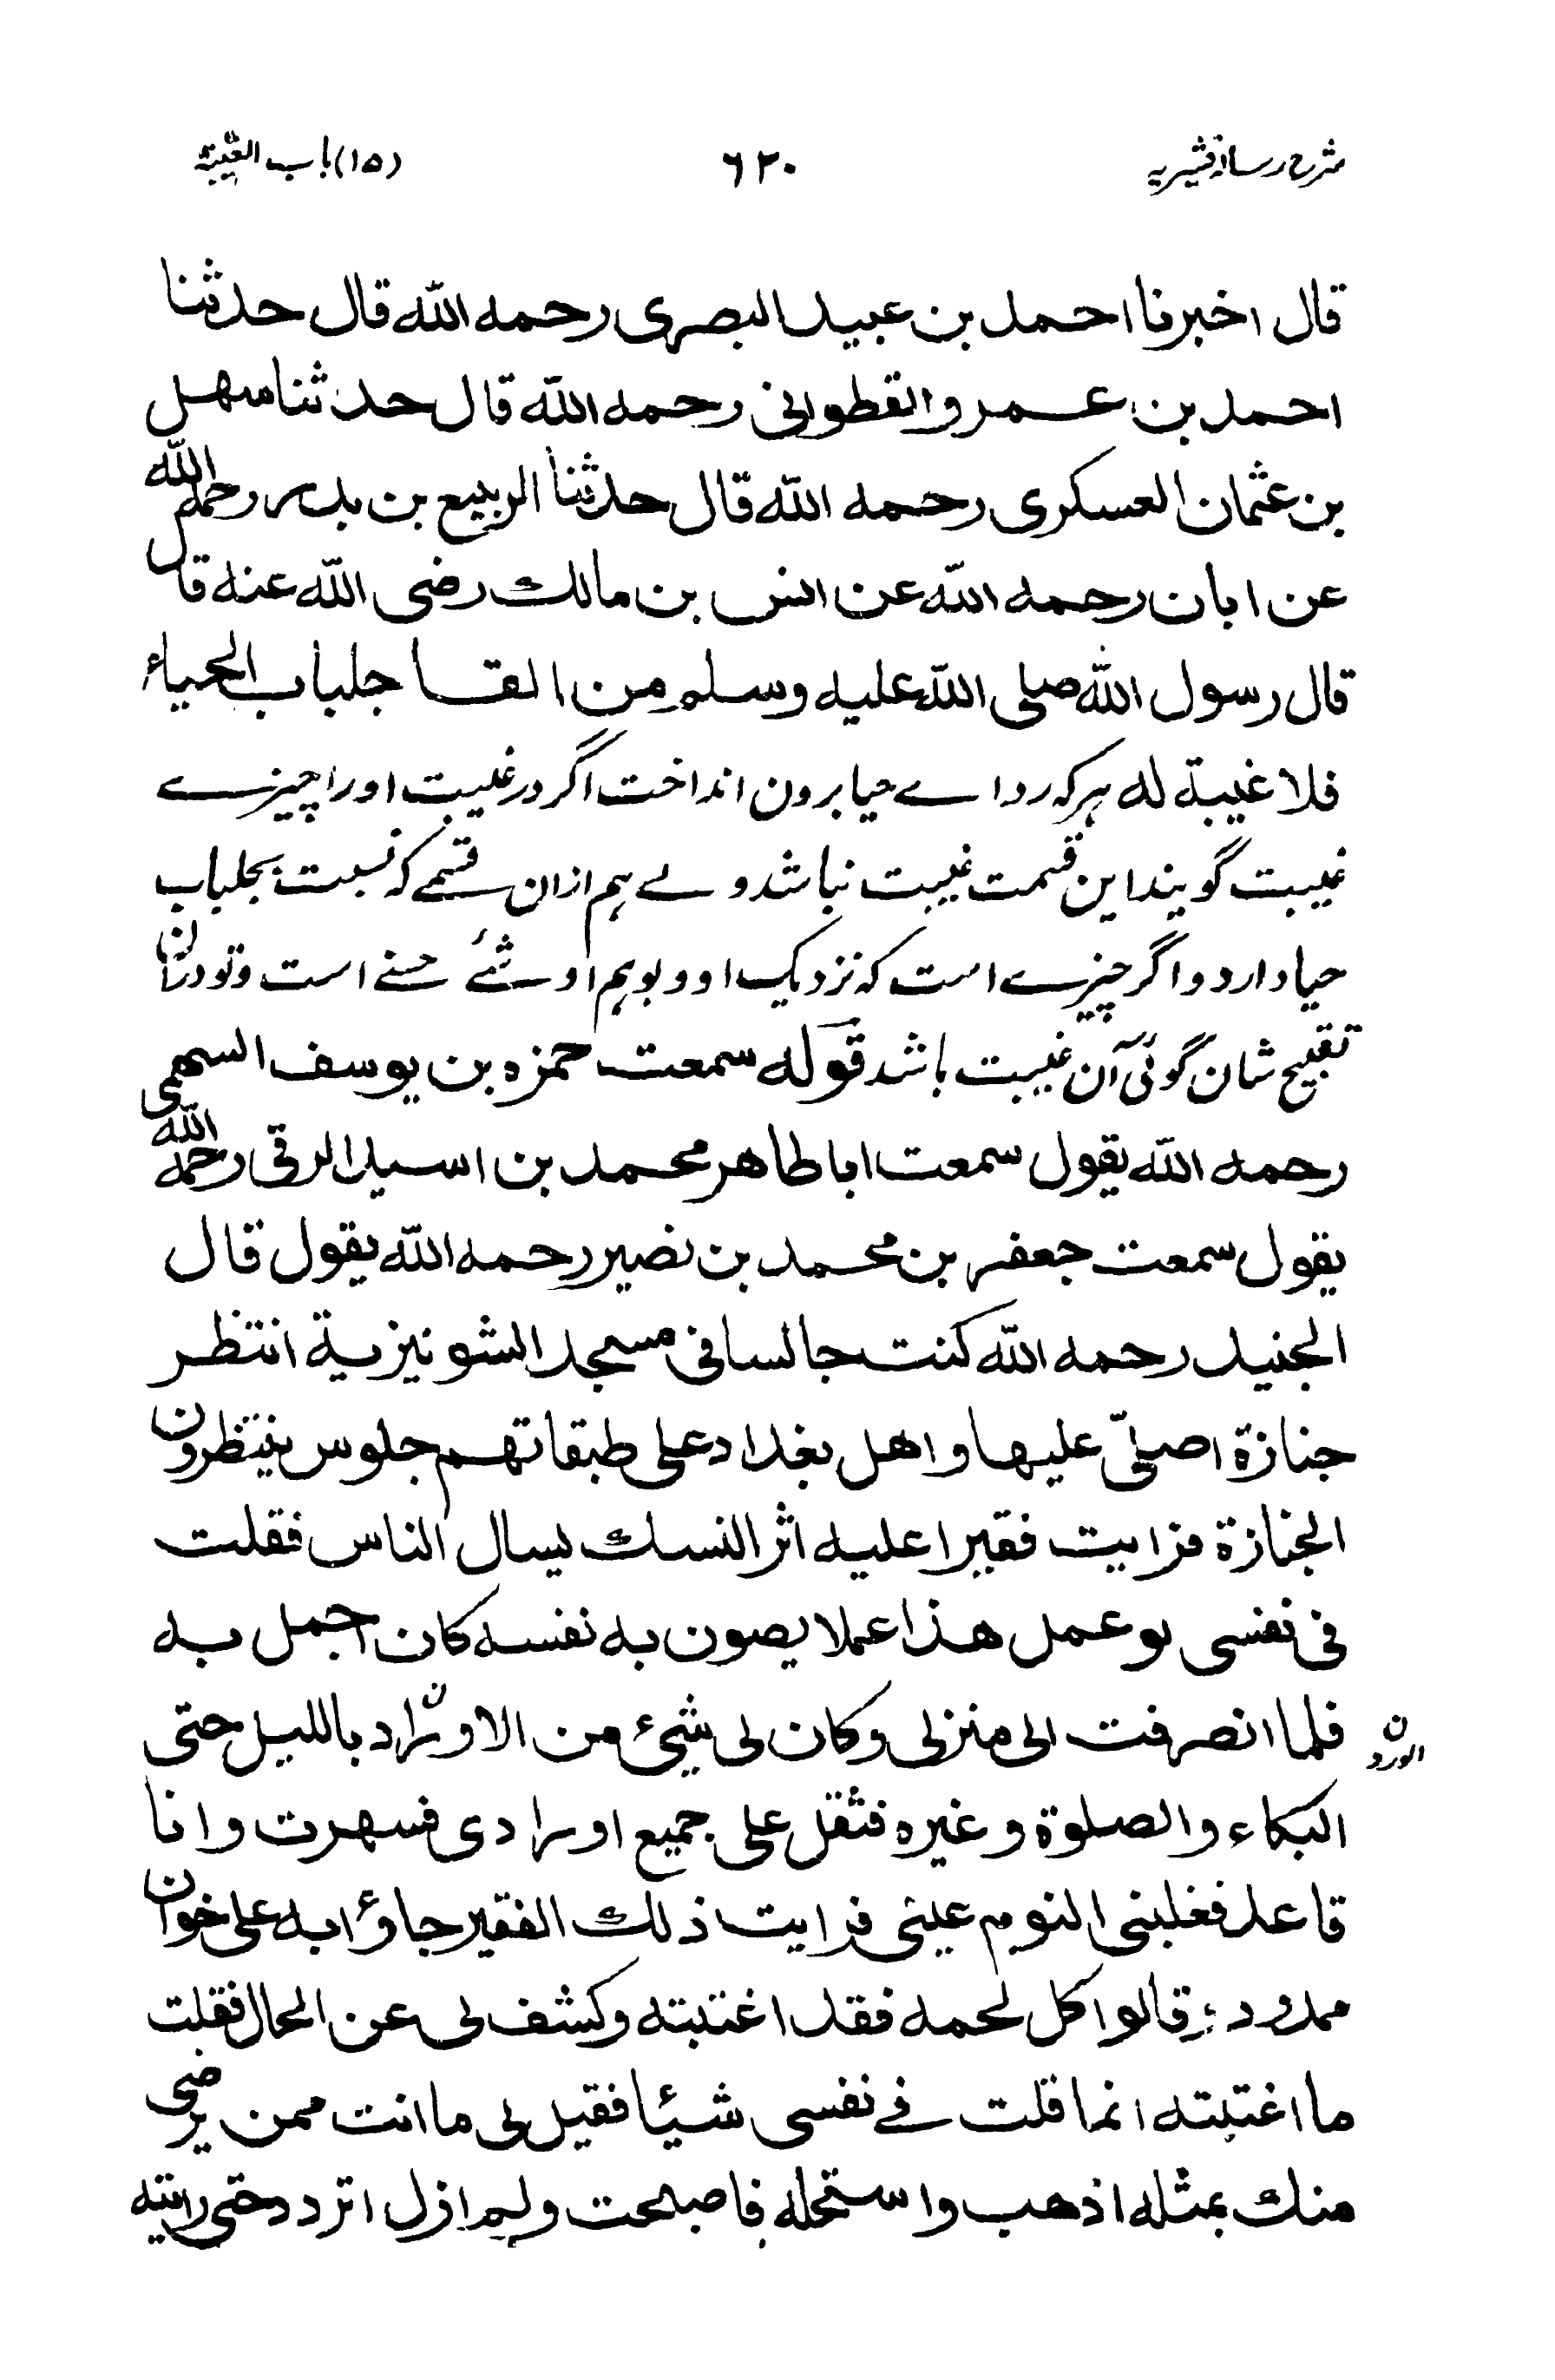 شرح رساله قشیریه ۶۲۰ (۱۵) باب الغیبة
قال اخبرنا احمد بن عبید البصری رحمه الله قال حدثنا
احمد بن عمرو القطوانی رحمه الله قال حدثنا سهل
بن عثمان العسکری رحمه الله قال حدثنا الربیع بن بدر رحمه الله
عن ابان رحمه الله عن انس بن مالک رضی الله عنه قال
قال رسول الله صلی الله علیه وسلم من القا جلباب الحیاء
فلا غیبة له هرکه ردا ے حیا برون انداخت اگر در غیبت اورا چیزے
غیبت گویند این قسمت غیبت نباشد ولے هم ازان قسمے که نسبت بجلباب
حیا دارد واگر چیزے است که نزدیک او وبوهم او شئے حسنے است وتو دران
تقبیح شان گوئی آن غیبت باشد قوله سمعت حمزه بن یوسف السهمی
رحمه الله یقول سمعت ابا طاهر محمد بن اسید الرقی رحمه الله
یقول سمعت جعفر بن محمد بن نصیر رحمه الله یقول قال
الجنید رحمه الله کنت جالسا فی مسجد الشونیزیة انتظر
جنازة اصلّی علیها واهل بغداد علی طبقاتهم جلوس ینتظرون
الجنازة فرایت فقیرا علیه اثر النسک یسال الناس فقلت
فی نفسی لو عمل هذا عملا یصون به نفسه کان اجمل به
فلما انصرفت الی منزلی وکان لی شیٔ من الاوراد باللیل حتی
ن الورد
البکاء والصلوة وغیره فثقل علی جمیع اورادی فسهرت وانا
قاعد فغلبنی النوم عینی فرایت ذلک الفقیر جاؤا به علی خوان
ممدود وقالوا کل لحمه فقد اغتبته وکشف لی عن الحال فقلت
ما اغتبته انما قلت فے نفسی شیئا فقیل لی ما انت ممن یرضی
منک بمثله اذهب واستحله فاصبحت ولم ازل اتردد حتی رایته